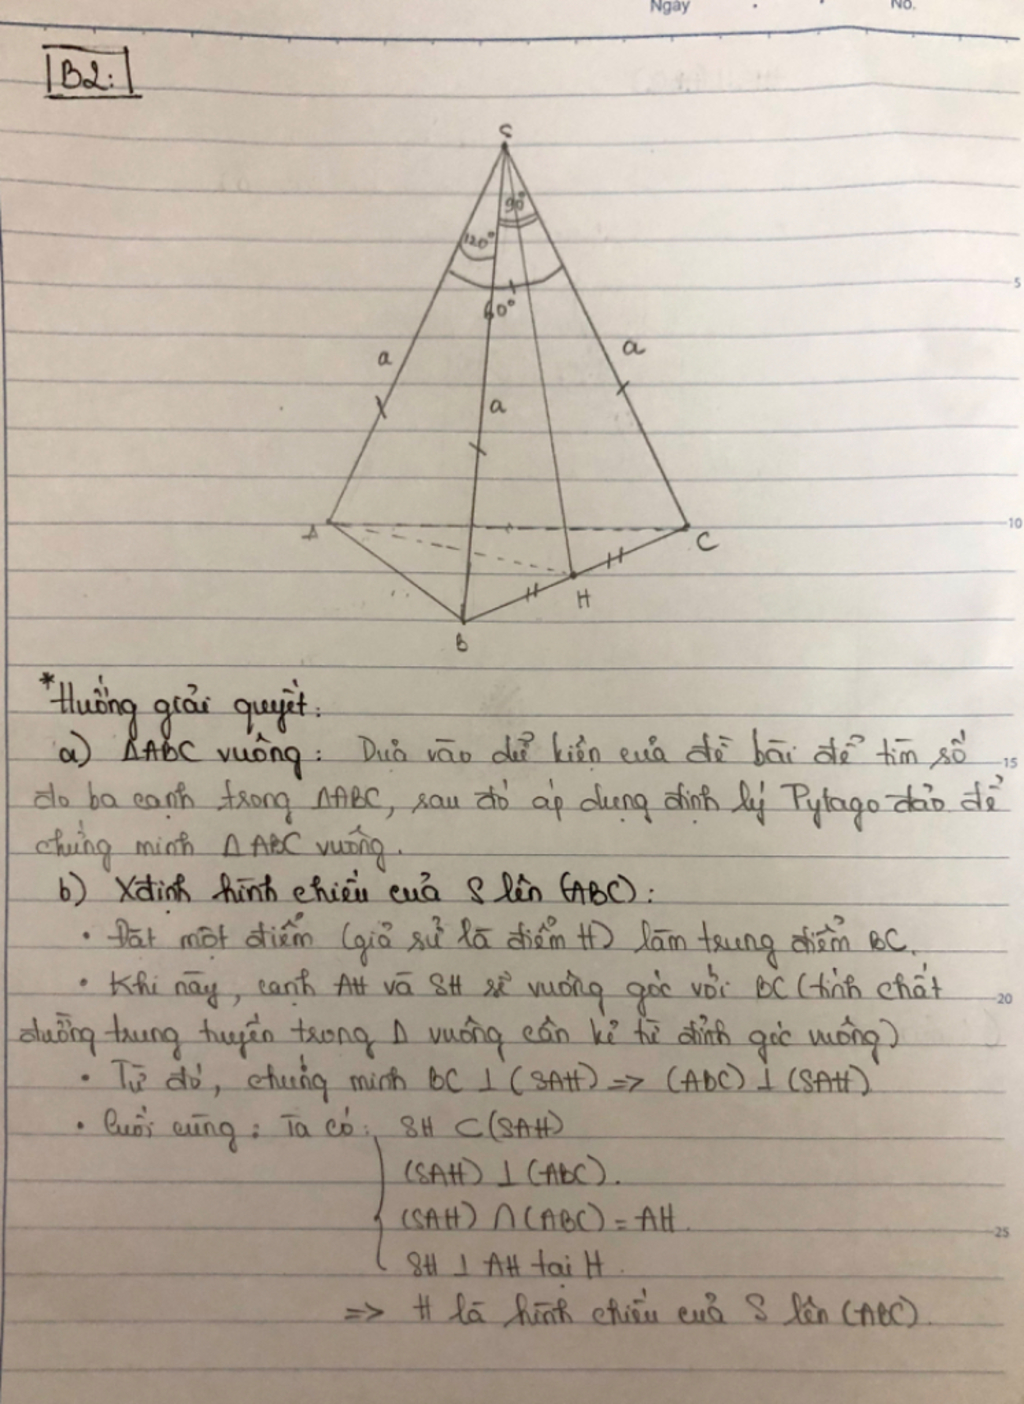 Ngày . . No.
B2:
S
90°
120°
60°
5
a
a
a
10
A
C
H
B
*Hướng giải quyết:
a) ΔABC vuông: Dựa vào dữ kiện của đề bài để tìm số
15
đo ba cạnh trong ΔABC, sau đó áp dụng định lý Pytago đảo để
chứng minh ΔABC vuông.
b) Xđịnh hình chiếu của S lên (ABC):
• Đặt một điểm (giả sử là điểm H) làm trung điểm BC.
• Khi này, cạnh AH và SH sẽ vuông góc với BC (tính chất
20
đường trung tuyến trong Δ vuông cân kẻ từ đỉnh góc vuông)
• Từ đó, chứng minh BC ⊥ (SAH) => (ABC) ⊥ (SAH)
• Cuối cùng: Ta có: SH ⊂ (SAH)
(SAH) ⊥ (ABC).
(SAH) ∩ (ABC) = AH.
25
SH ⊥ AH tại H.
=> H là hình chiếu của S lên (ABC).